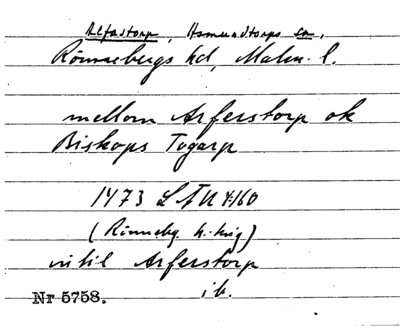 Alfastorp, Asmundtorps sn,
Rönnebergs hd, Malm. l.
mellom Arferstorp ok
Biskops Togarp
1473 LÅU 4:160
(Rönnebg. h.-ting)
in til Arferstorp
ib.
Nr 5758.